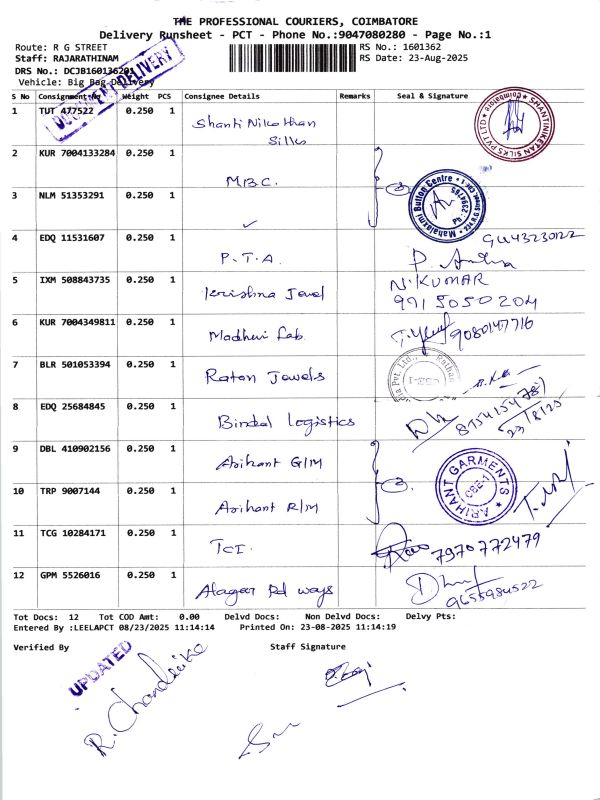 THE PROFESSIONAL COURIERS, COIMBATORE
Delivery Runsheet - PCT - Phone No.:9047080280 - Page No.:1
Route: R G STREET
RS No.: 1601362
Staff: RAJARATHINAM
RS Date: 23-Aug-2025
DRS No.: DCJB160136201
Vehicle: Big Bag Delivery
DOCUMENT DELIVERY
S No Consignment No Weight PCS Consignee Details Remarks Seal & Signature
1 TUT 477522 0.250 1 Shanti Nikethan Silks
SHANTINIKETAN SILKS PVT LTD Coimbatore
2 KUR 7004133284 0.250 1
M.B.C.
3 NLM 51353291 0.250 1
Mahalaxmi Button Centre
4 EDQ 11531607 0.250 1 P.T.A.
5 IXM 508843735 0.250 1 Krishna Jewel N.KUMAR
9915050204
6 KUR 7004349811 0.250 1 Madhuri Lab. 9080147716
7 BLR 501053394 0.250 1 Ratan Jewels
8 EDQ 25684845 0.250 1 Bindal Logistics
23/8/25
9 DBL 410902156 0.250 1 Arihant G/M
ARIHANT GARMENTS CBE-1
10 TRP 9007144 0.250 1 Arihant R/M
11 TCG 10284171 0.250 1 TCI. 7970772479
12 GPM 5526016 0.250 1 Alagar Rd ways
9655984522
Tot Docs: 12 Tot COD Amt: 0.00 Delvd Docs: Non Delvd Docs: Delvy Pts:
Entered By :LEELAPCT 08/23/2025 11:14:14 Printed On: 23-08-2025 11:14:19
Verified By Staff Signature
UPDATED
R. Chandrike